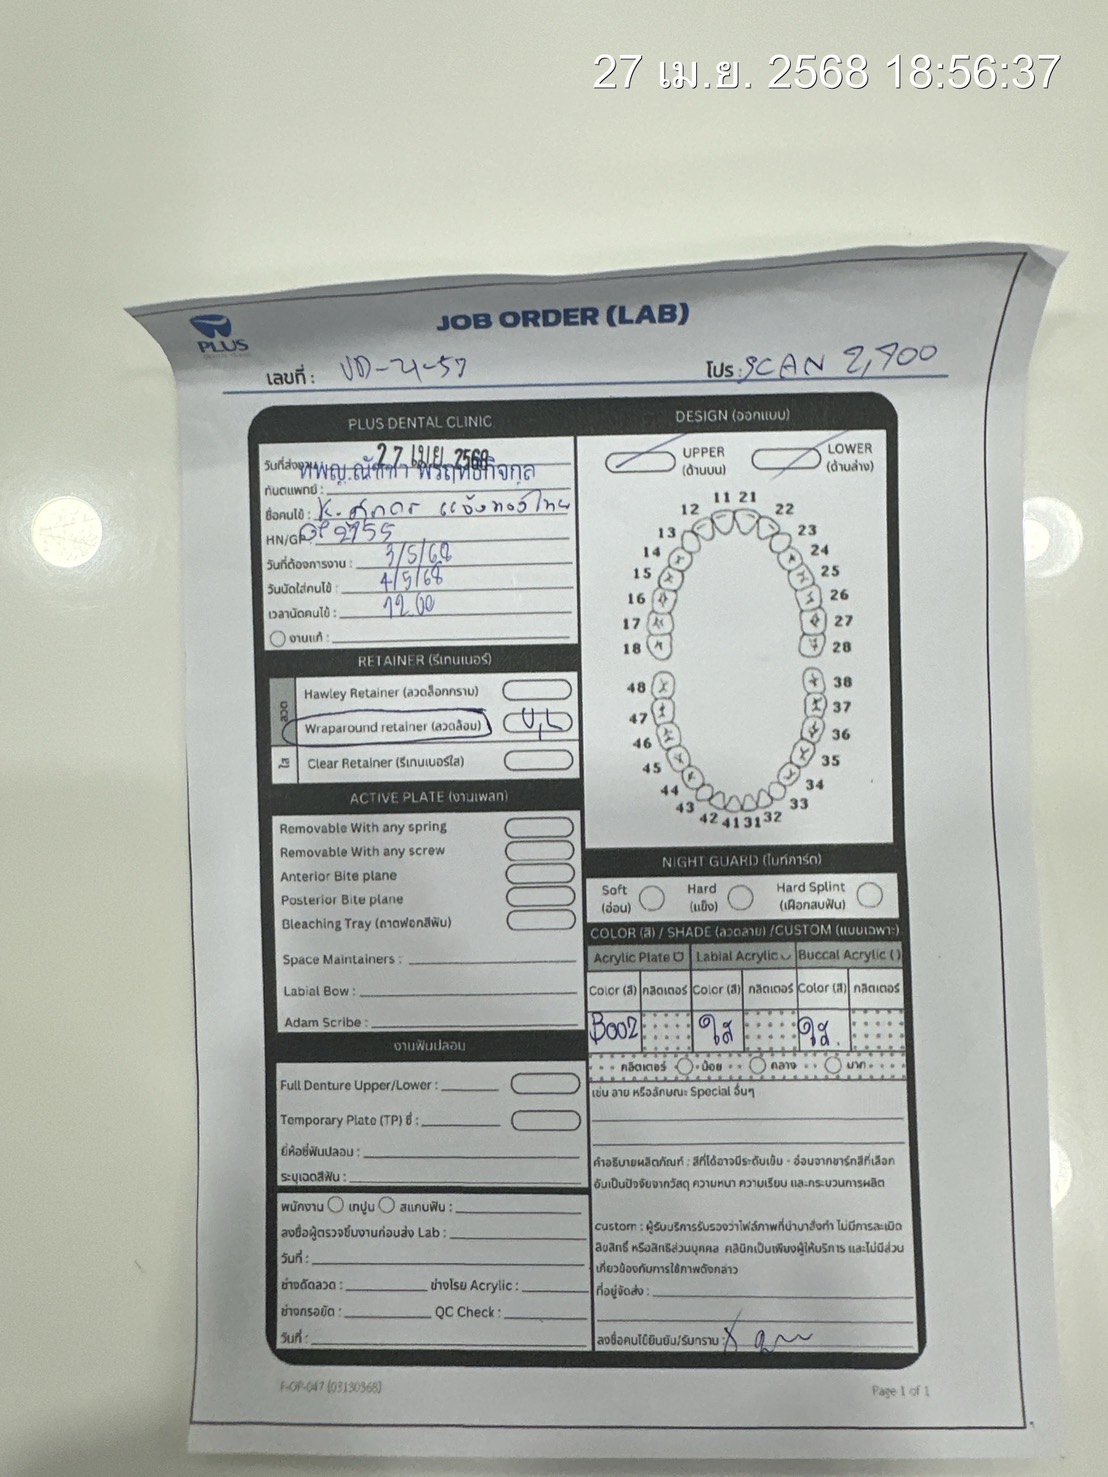 27 เม.ย. 2568 18:56:37
PLUS
JOB ORDER (LAB)
เลขที่ :
โปร : SCAN 2,900
PLUS DENTAL CLINIC
วันที่ส่งงาน 27 เมย 2568
ทันตแพทย์ : ทพญ.ณัทชา
ชื่อคนไข้ : K.
HN/GP: GP 2955
วันที่ต้องการงาน : 3/5/68
วันนัดใส่คนไข้ : 4/5/68
เวลานัดคนไข้ : 12.00
งานแก้ :
RETAINER (รีเทนเนอร์)
ลวด
Hawley Retainer (ลวดล็อกกราม)
Wraparound retainer (ลวดล้อม) U,L
ใส
Clear Retainer (รีเทนเนอร์ใส)
ACTIVE PLATE (งานเพลท)
Removable With any spring
Removable With any screw
Anterior Bite plane
Posterior Bite plane
Bleaching Tray (ถาดฟอกสีฟัน)
Space Maintainers :
Labial Bow :
Adam Scribe :
งานฟันปลอม
Full Denture Upper/Lower :
Temporary Plate (TP) ซี่ :
ยี่ห้อซี่ฟันปลอม :
ระบุเฉดสีฟัน :
พนักงาน เทปูน สแกนฟัน :
ลงชื่อผู้ตรวจชิ้นงานก่อนส่ง Lab :
วันที่ :
ช่างดัดลวด : ช่างโรย Acrylic :
ช่างกรอขัด : QC Check :
วันที่ :
DESIGN (ออกแบบ)
UPPER
(ด้านบน)
LOWER
(ด้านล่าง)
11 21
12 22
13 23
14 24
15 25
16 26
17 27
18 28
48 38
47 37
46 36
45 35
44 34
43 33
42 41 31 32
NIGHT GUARD (ไนท์การ์ด)
Soft
(อ่อน)
Hard
(แข็ง)
Hard Splint
(เฝือกสบฟัน)
COLOR (สี) / SHADE (ลวดลาย) /CUSTOM (แบบเฉพาะ)
Acrylic Plate Labial Acrylic Buccal Acrylic ( )
Color (สี) กลิตเตอร์ Color (สี) กลิตเตอร์ Color (สี) กลิตเตอร์
B002 ใส ใส.
กลิตเตอร์ น้อย กลาง มาก
เช่น ลาย หรือลักษณะ Special อื่นๆ
คำอธิบายผลิตภัณฑ์ : สีที่ได้อาจมีระดับเข้ม - อ่อนจากชาร์ทสีที่เลือก
อันเป็นปัจจัยจากวัสดุ ความหนา ความเรียบ และกระบวนการผลิต
custom : ผู้รับบริการรับรองว่าไฟล์ภาพที่นำมาสั่งทำ ไม่มีการละเมิด
ลิขสิทธิ์ หรือสิทธิส่วนบุคคล คลินิกเป็นเพียงผู้ให้บริการ และไม่มีส่วน
เกี่ยวข้องกับการใช้ภาพดังกล่าว
ที่อยู่จัดส่ง :
ลงชื่อคนไข้ยืนยัน/รับทราบ :
F-OP-047 (03130368)
Page 1 of 1